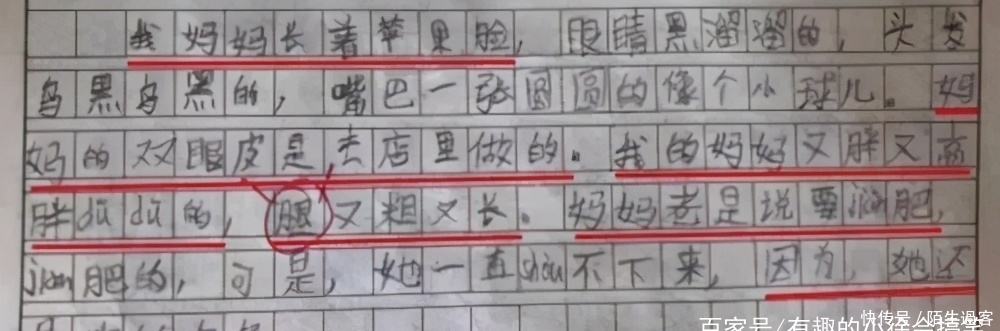 我妈妈长着苹果脸，眼睛黑溜溜的，头发
乌黑乌黑的，嘴巴一张圆圆的像个小球儿。妈
妈的双眼皮是去店里做的。我的妈妈又胖又高
胖dū dū的，腿又粗又长。妈妈老是说要jiǎn肥，
jiǎn肥的，可是，她一直shòu不下来，因为，她还
快传号/陌生過客
百家号/有趣的小往合搞笑